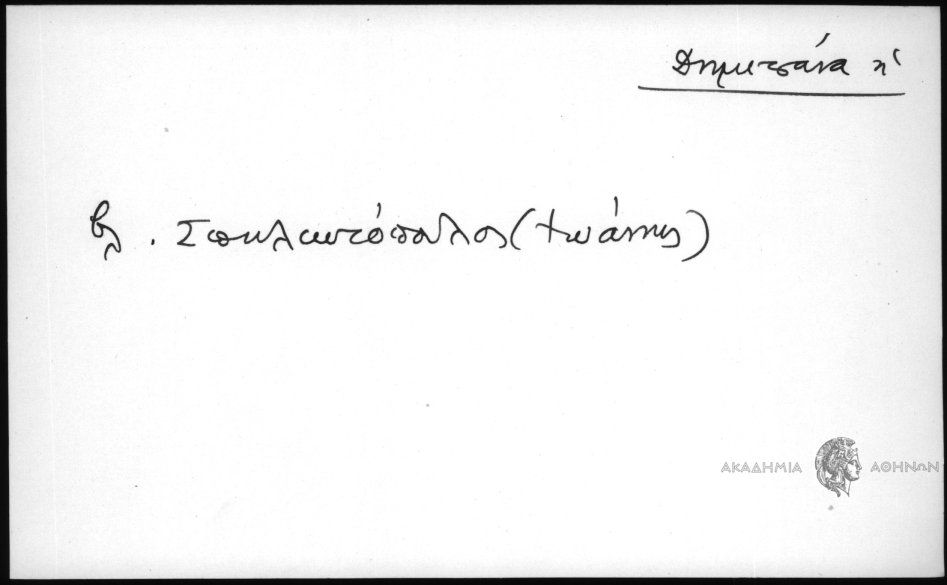 Δημητσάνα ἡ
βλ. Σπηλιωτόπουλος (Ἰωάννης)
ΑΚΑΔΗΜΙΑ ΑΘΗΝΩΝ